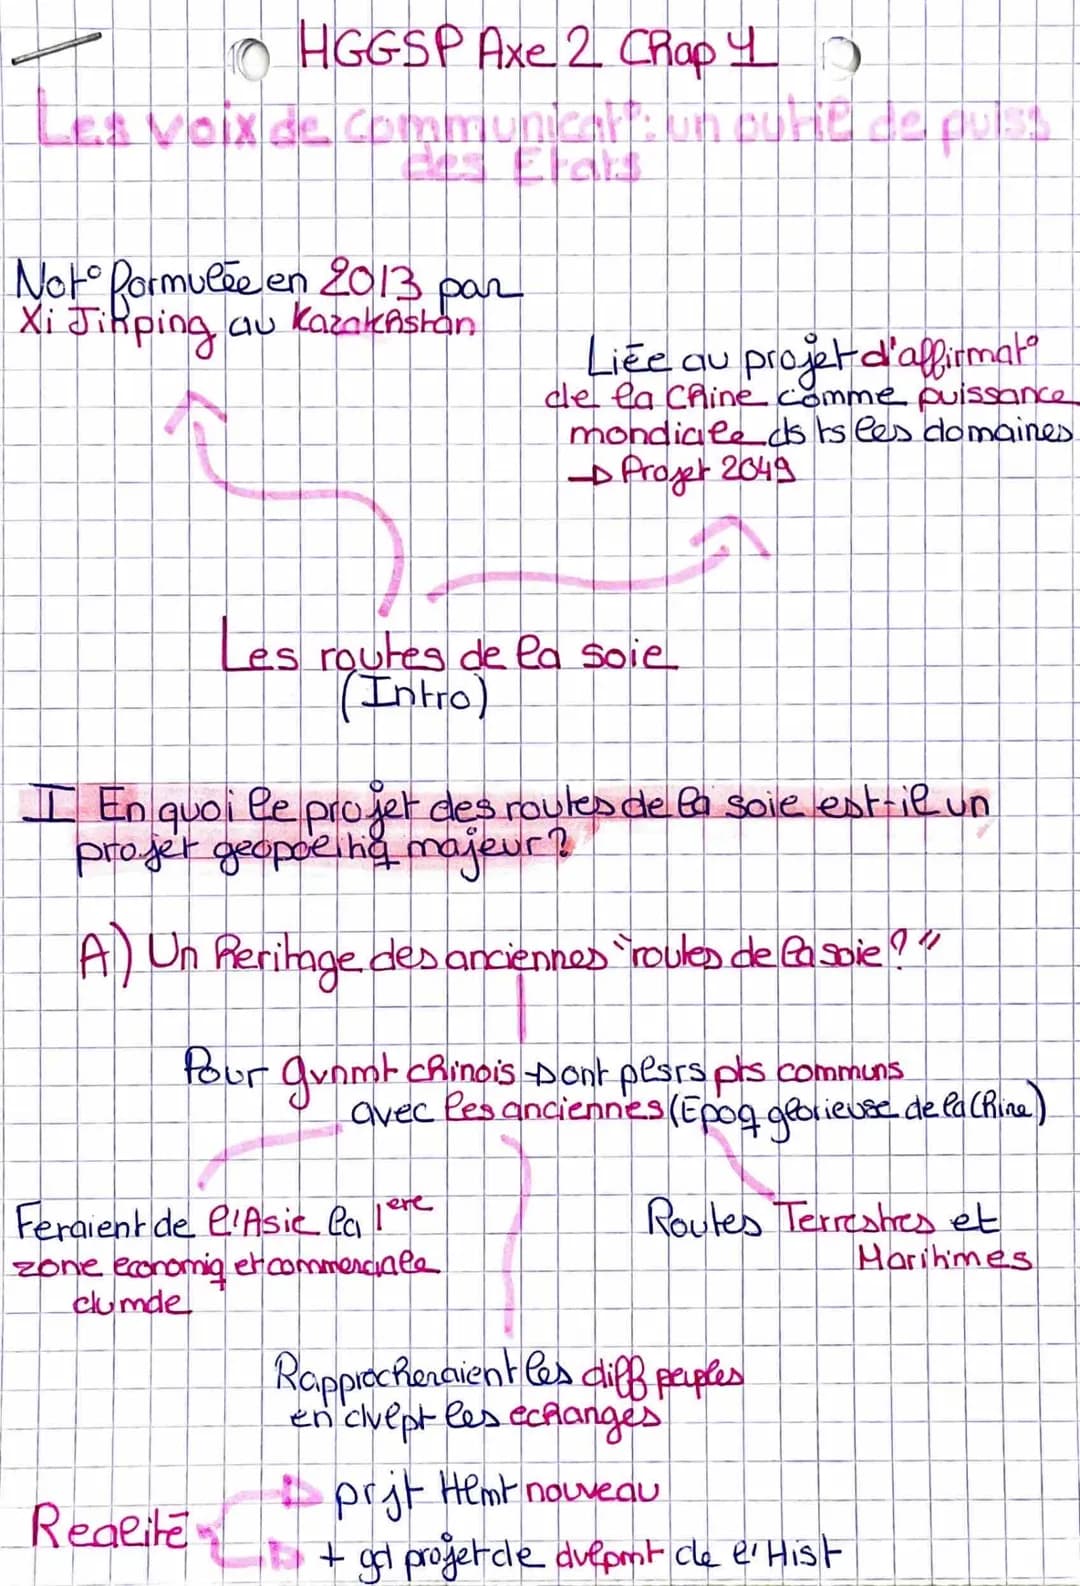 HGGSP Axe 2 Chap 1
Les voix de communicat°: un outil de puiss
des Etats
Not° formulée en 2013 par
Xi Jinping au Kazakhstan
Liée au projet d'affirmat°
de la Chine comme puissance
mondiale ds ts les domaines
→ Projet 2049
Les routes de la soie
(Intro)
I En quoi le projet des routes de la soie est-il un
projet geopolitiq majeur?
A) Un heritage des anciennes "routes de la soie?"
Pour gvnmt chinois → ont plsrs pts communs
avec les anciennes (Epoq glorieuse de la Chine)
Feraient de l'Asie la 1ere
zone economiq et commerciale
du mde
Routes Terrestres et
Maritimes
Rapprocheraient les diff peuples
en dvlpt les echanges
Realité
prjt Hlmt nouveau
+ gd projet de dvlpmt de l'Hist